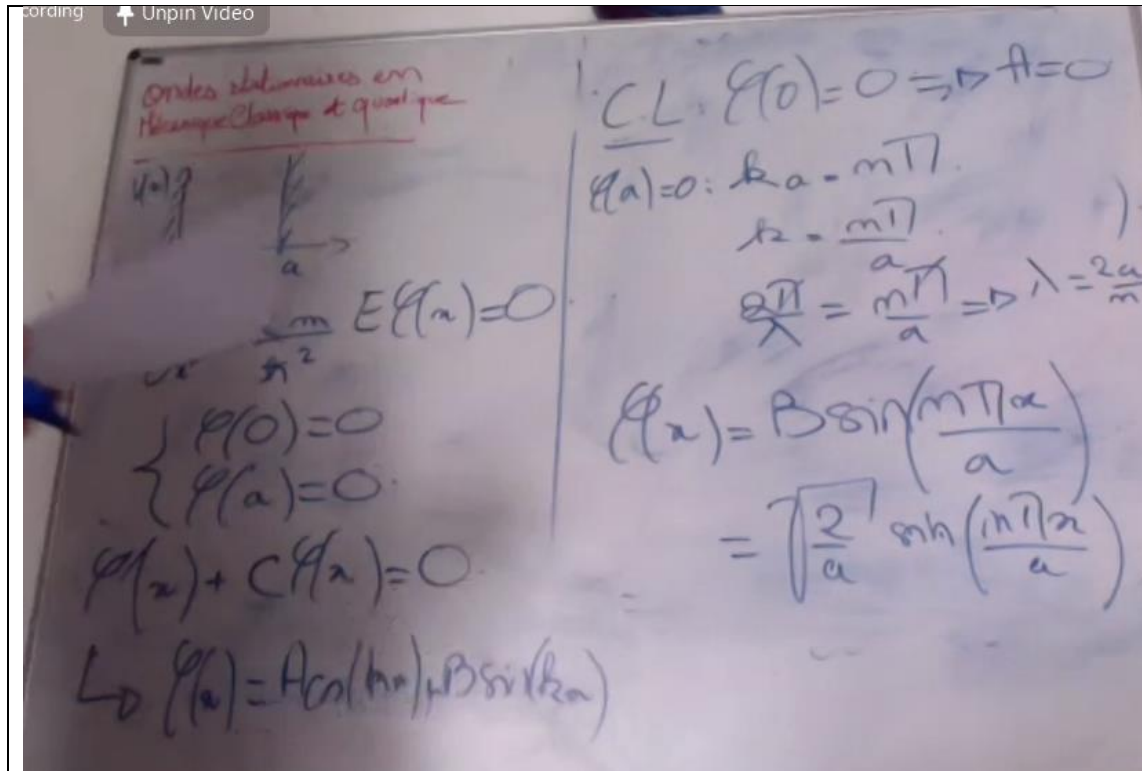 cording
Unpin Video
Ondes stationnaires en
Mécanique Classique et quantique
V(x)
a
m/ħ² Eφ(x)=0
φ(0)=0
φ(a)=0.
φ''(x)+Cφ(x)=0
↳ φ(x)=Acos(kx)+Bsin(kx)
CL: φ(0)=0 => A=0
φ(a)=0: ka=nπ.
k=nπ/a.
2π/λ=nπ/a => λ=2a/n
φ(x)=Bsin(nπx/a)
=√(2/a) sin(nπx/a)